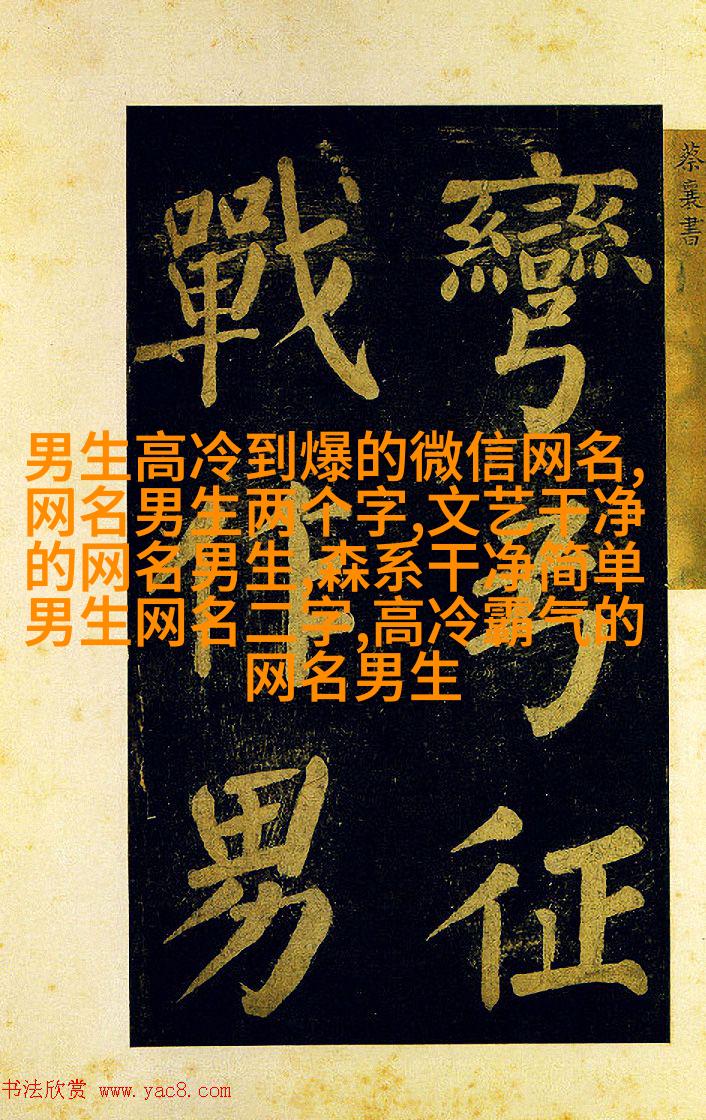 蔡襄書
彎弓征
戰作男
男生高冷到爆的微信网名,
网名男生两个字,文艺干净
的网名男生,森系干净简单
男生网名二字,高冷霸气的
网名男生
书法欣赏 www.yac8.com